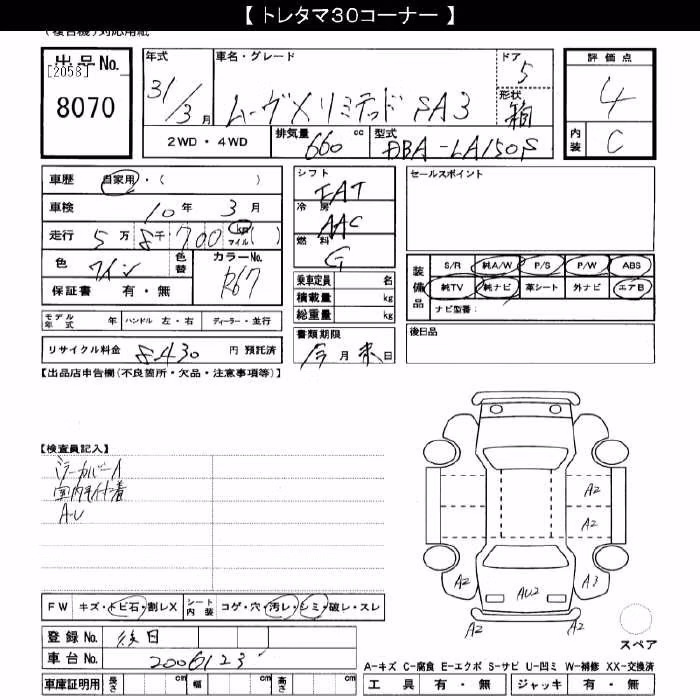 【 トレタマ30コーナー 】
(複合機)対応用紙
出品No. [2058] 8070
年式 31/3月
車名・グレード ムーヴXリミテッドSA3
ドア 5
形状 箱
2WD・4WD
排気量 660 cc
型式 DBA-LA150S
評価点 4
内装 C
車歴 自家用・( )
車検 10年 3月
走行 5万 8千 700 km マイル ( )
色 ワイン 色替 カラーNo. R67
保証書 有・無
モデル年式 年 ハンドル 左・右 ディーラー・並行
リサイクル料金 8430 円 預託済
シフト FAT
冷房 AAC
燃料 G
乗車定員 名
積載量 kg
総重量 kg
書類期限 今月末日
セールスポイント
装備品 S/R 純A/W P/S P/W ABS
純TV 純ナビ 革シート 外ナビ エアB
ナビ型番:
後日品
【出品店申告欄(不良箇所・欠品・注意事項等)】
【検査員記入】
ミラーカバーA
室内毛付着
A-U
A2
A2
A2
AU2
A3
A2
A2
スペア
FW キズ・トビ石・割レX シート内装 コゲ・穴・汚レ・シミ・破レ・スレ
登録No. 後日
車台No. 2006123
車庫証明用 長さ cm 幅 cm 高さ cm
A-キズ C-腐食 E-エクボ S-サビ U-凹ミ W-補修 XX-交換済
工具 有・無 ジャッキ 有・無